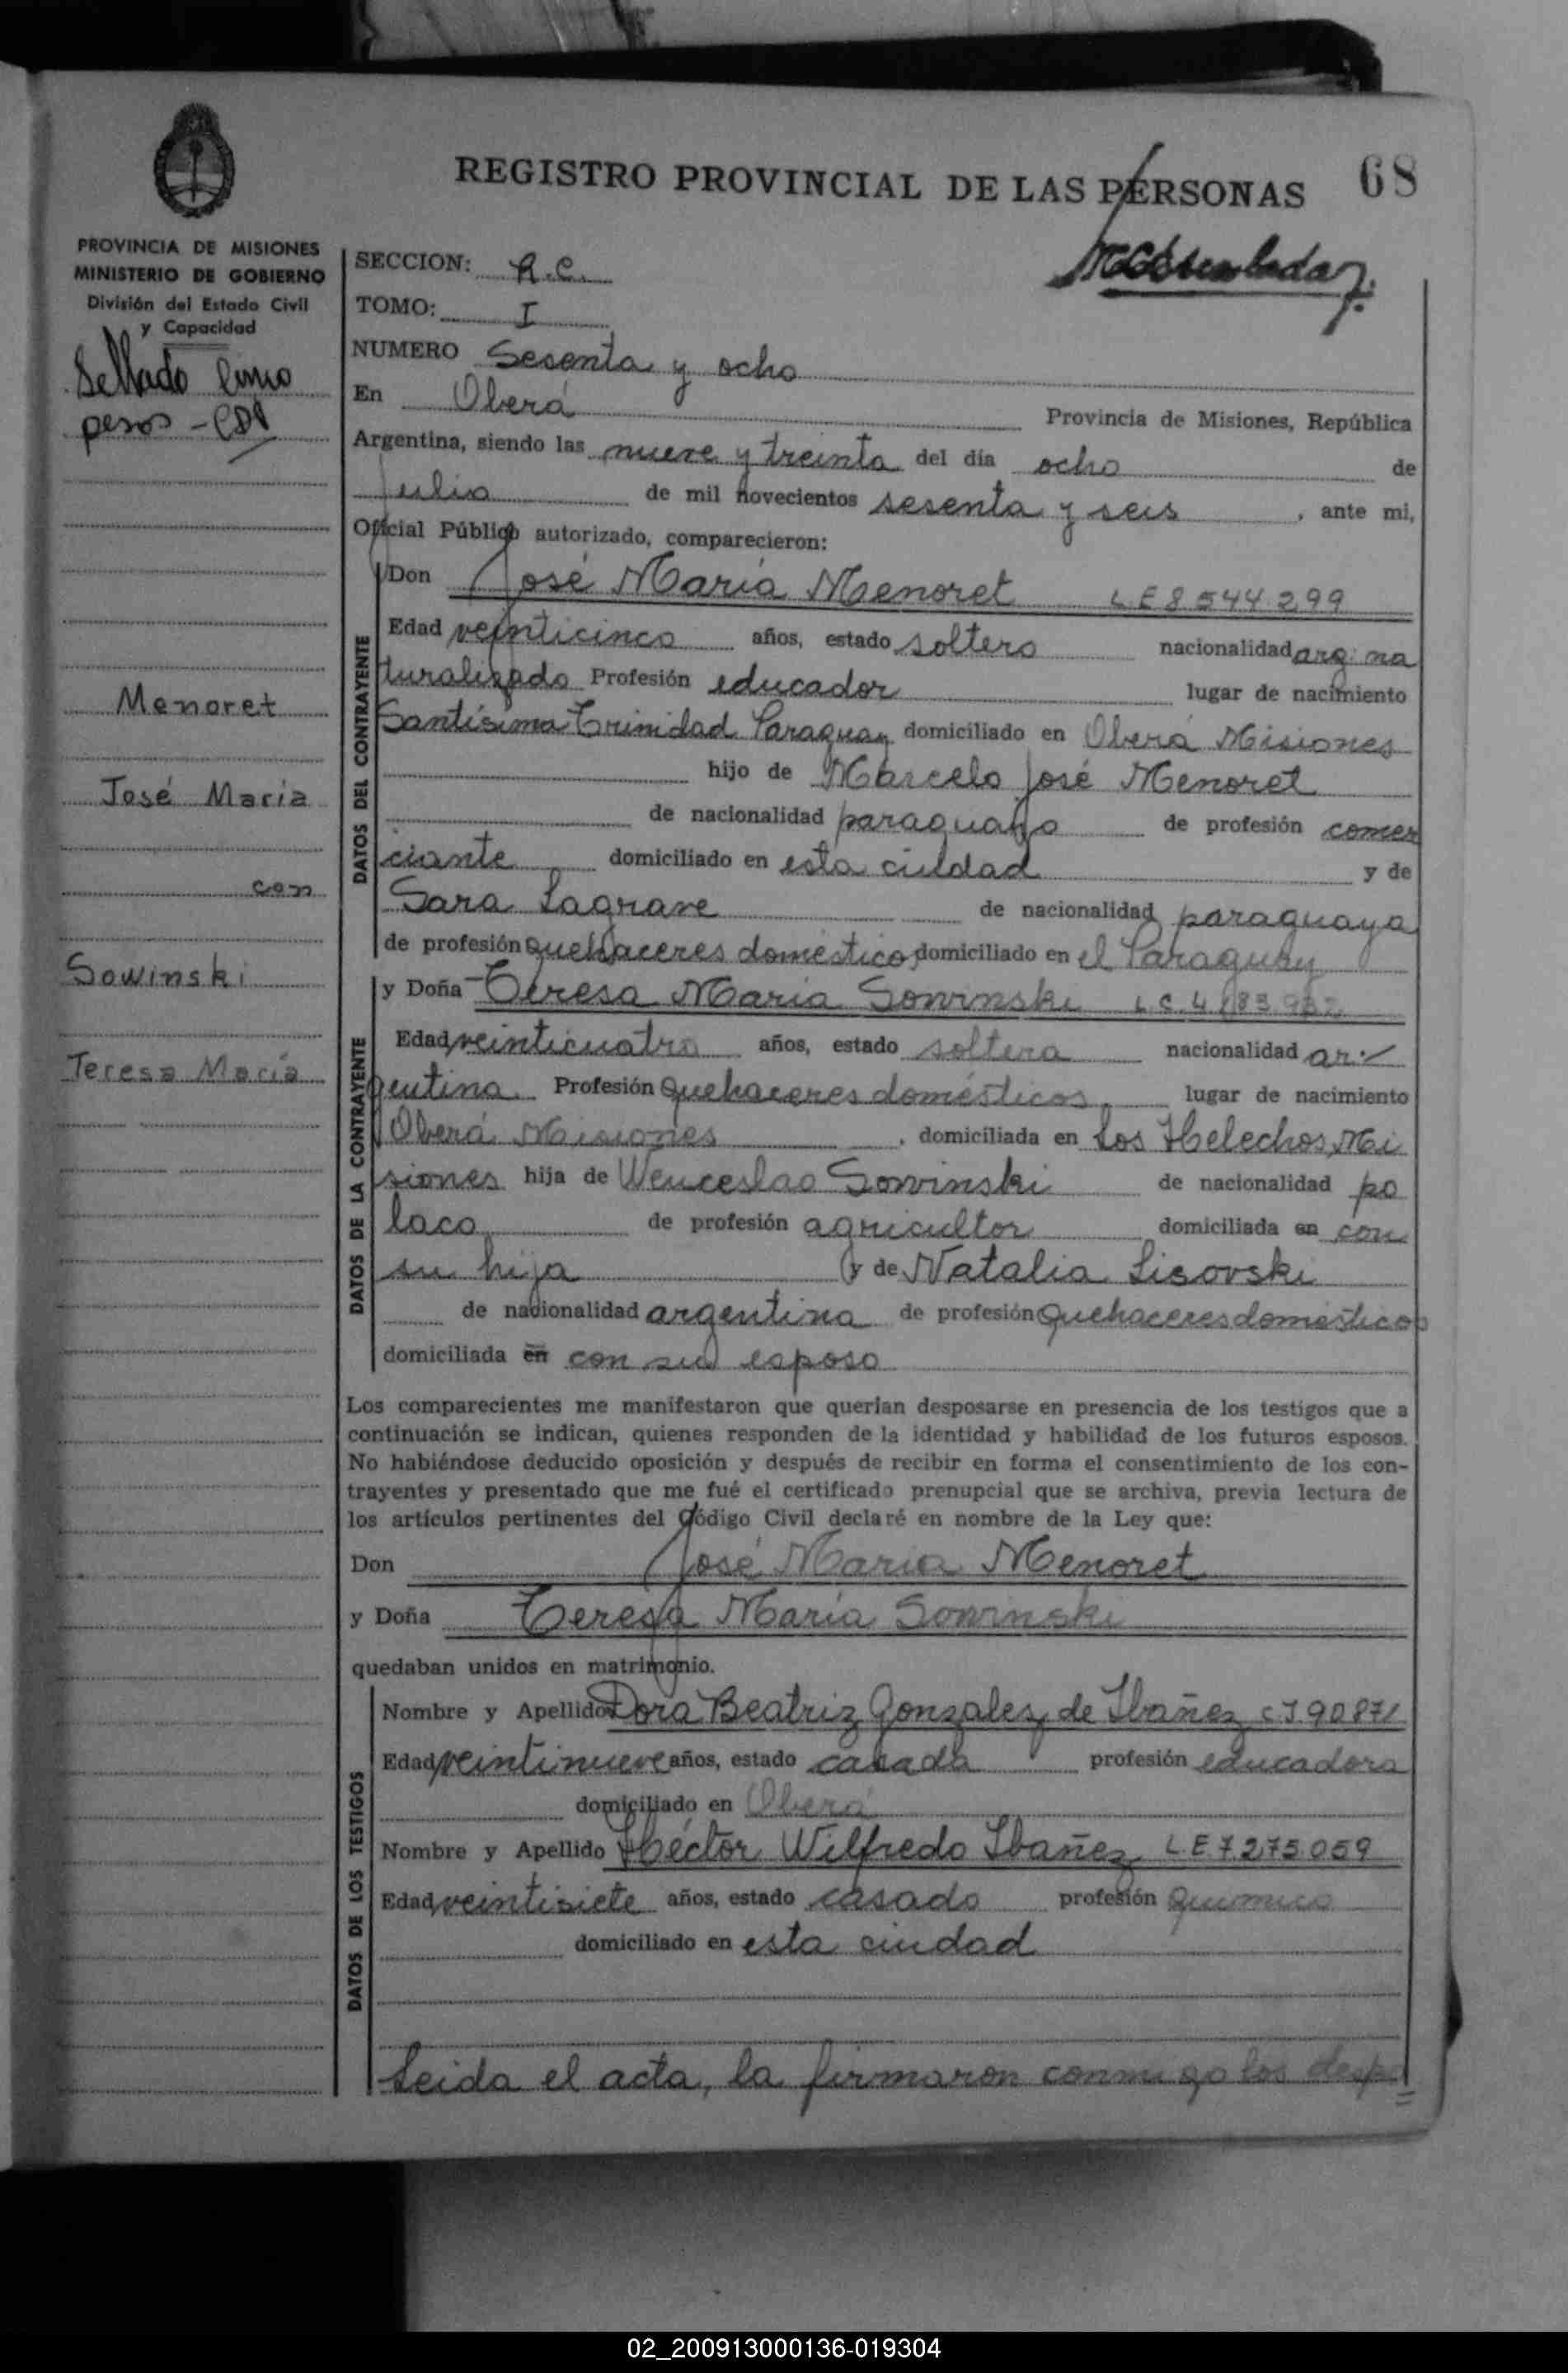 REGISTRO PROVINCIAL DE LAS PERSONAS 68
PROVINCIA DE MISIONES
MINISTERIO DE GOBIERNO
División del Estado Civil
y Capacidad
Sellado cinco
pesos -
Menoret
José Maria
con
Sowinski
Teresa María
SECCION: R.C.
TOMO: I
NUMERO Sesenta y ocho
En Oberá Provincia de Misiones, República
Argentina, siendo las nueve y treinta del día ocho de
Julio de mil novecientos sesenta y seis, ante mi,
Oficial Público autorizado, comparecieron:
DATOS DEL CONTRAYENTE
Don José María Menoret L.E 8.544.299
Edad veinticinco años, estado soltero nacionalidad arg. na
turalizado Profesión educador lugar de nacimiento
Santísima Trinidad Paraguay domiciliado en Oberá Misiones
hijo de Marcelo José Menoret
de nacionalidad paraguayo de profesión comer
ciante domiciliado en esta ciudad y de
Sara Lagrave de nacionalidad paraguaya
de profesión quehaceres doméstico, domiciliado en el Paraguay
DATOS DE LA CONTRAYENTE
y Doña Teresa María Sowinski L.C. 4.
Edad veinticuatro años, estado soltera nacionalidad ar:/
gentina Profesión quehaceres domésticos, lugar de nacimiento
Oberá Misiones, domiciliada en Los Helechos, Mi
siones hija de Wenceslao Sowinski de nacionalidad po
laco de profesión agricultor domiciliada en con
su hija y de Natalia Lisovski
de nacionalidad argentina de profesión quehaceres domésticos
domiciliada en con su esposo
Los comparecientes me manifestaron que querían desposarse en presencia de los testigos que a
continuación se indican, quienes responden de la identidad y habilidad de los futuros esposos.
No habiéndose deducido oposición y después de recibir en forma el consentimiento de los con-
trayentes y presentado que me fué el certificado prenupcial que se archiva, previa lectura de
los artículos pertinentes del Código Civil declaré en nombre de la Ley que:
Don José María Menoret
y Doña Teresa María Sowinski
quedaban unidos en matrimonio.
DATOS DE LOS TESTIGOS
Nombre y Apellido Dora Beatriz Gonzalez de Ibañez C.I. 90.871
Edad veintinueve años, estado casada profesión educadora
domiciliado en Oberá
Nombre y Apellido Héctor Wilfredo Ibañez L.E. 7.275.059
Edad veintisiete años, estado casado profesión químico
domiciliado en esta ciudad
Leida el acta, la firmaron conmigo los despo
02_200913000136-019304